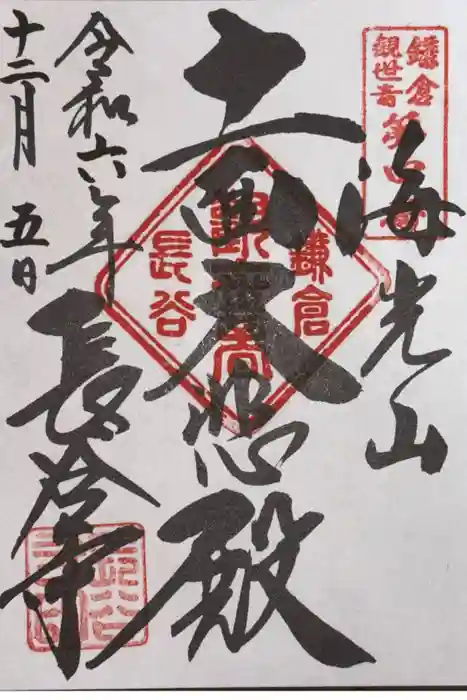 鎌倉
観世音
第四番
海光山
十一面大悲殿
鎌倉
長谷
令和六年
十二月五日
長谷寺